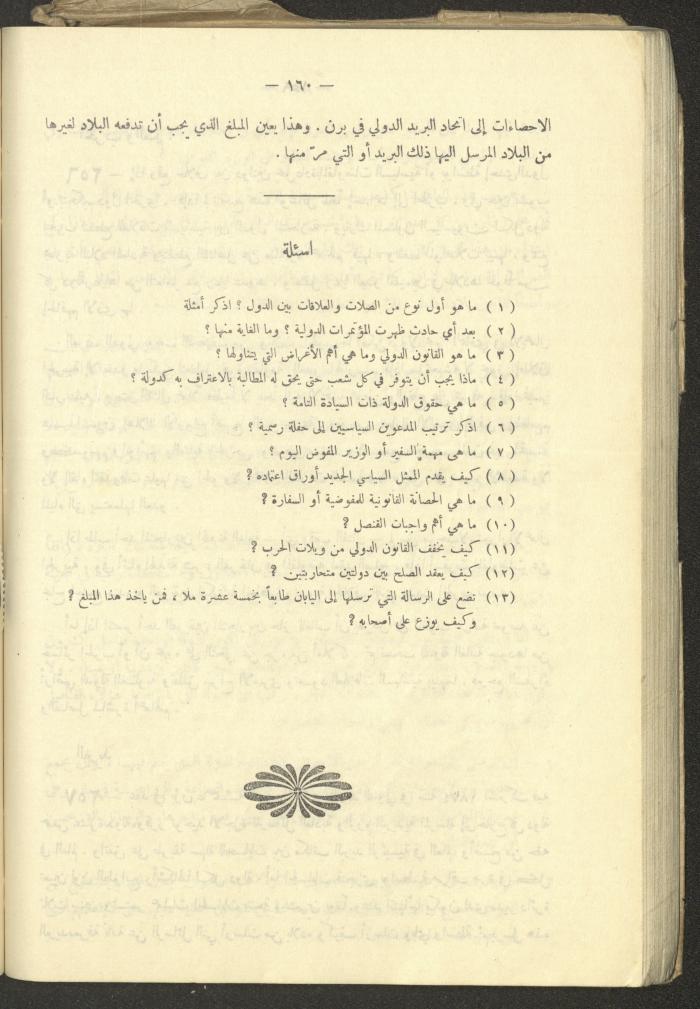 — ١٦٠ —
الاحصاءات إلى اتحاد البريد الدولي في برن . وهذا يعين المبلغ الذي يجب أن تدفعه البلاد لغيرها
من البلاد المرسل اليها ذلك البريد أو التي مرّ منها .
اسئلة
( ١ ) ما هو أول نوع من الصلات والعلاقات بين الدول ؟ اذكر أمثلة
( ٢ ) بعد أي حادث ظهرت المؤتمرات الدولية ؟ وما الغاية منها ؟
( ٣ ) ما هو القانون الدولي وما هي أهم الأغراض التي يتناولها ؟
( ٤ ) ماذا يجب أن يتوفر في كل شعب حتى يحق له المطالبة بالاعتراف به كدولة ؟
( ٥ ) ما هي حقوق الدولة ذات السيادة التامة ؟
( ٦ ) اذكر ترتيب المدعوين السياسيين إلى حفلة رسمية ؟
( ٧ ) ما هي مهمة السفير أو الوزير المفوض اليوم ؟
( ٨ ) كيف يقدم الممثل السياسي الجديد أوراق اعتماده ؟
( ٩ ) ما هي الحصانة القانونية للمفوضية أو السفارة ؟
(١٠) ما هي أهم واجبات القنصل ؟
(١١) كيف يخفف القانون الدولي من ويلات الحرب ؟
(١٢) كيف يعقد الصلح بين دولتين متحاربتين ؟
(١٣) نضع على الرسالة التي نرسلها إلى اليابان طابعاً بخمسة عشرة ملا ، فمن يأخذ هذا المبلغ ؟
وكيف يوزع على أصحابه ؟